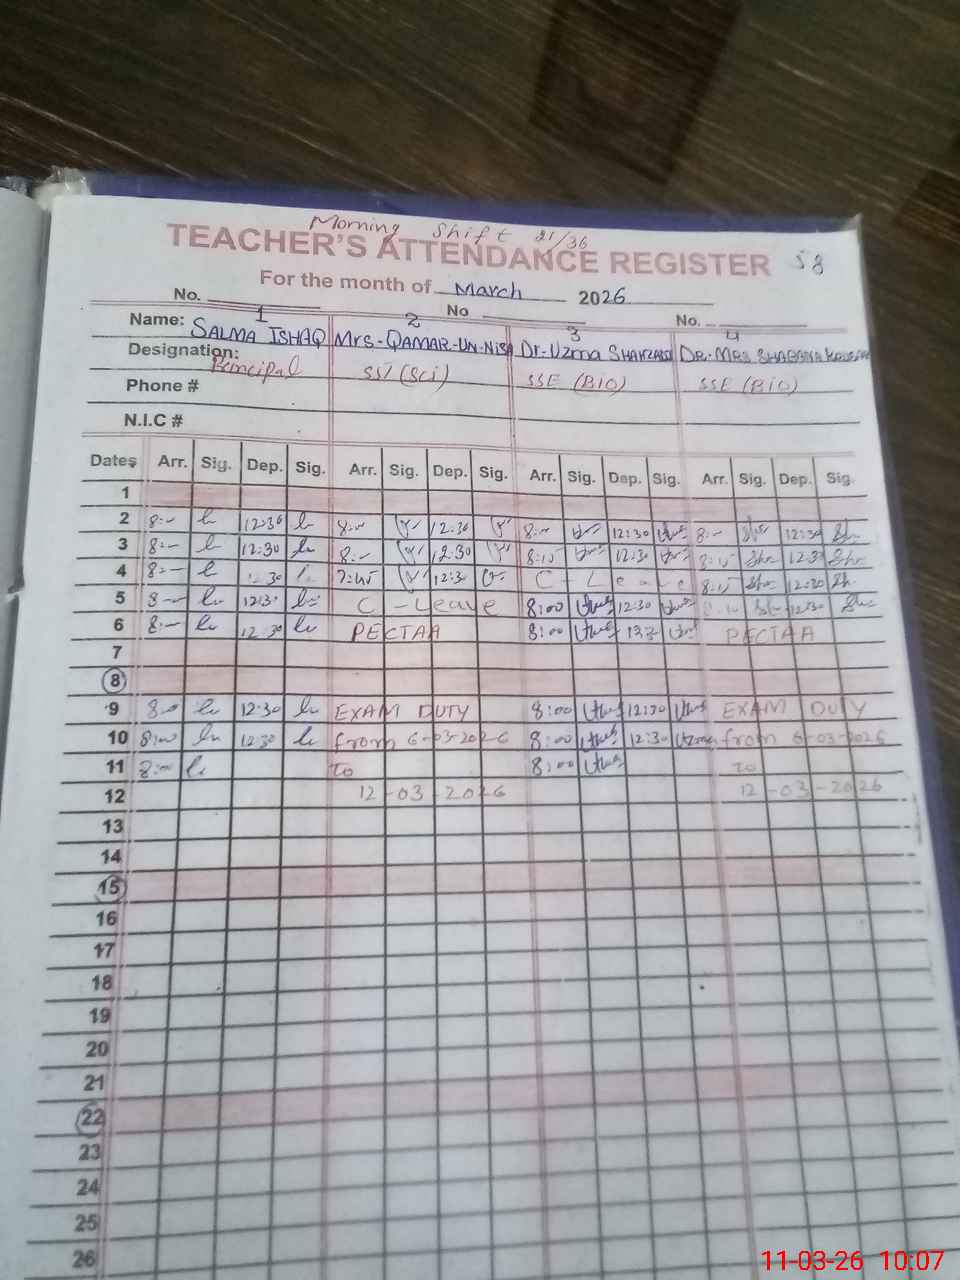 Morning Shift 21/36
TEACHER'S ATTENDANCE REGISTER 58
For the month of March 2026
No. 1 No 2 3 No. 4
Name: SALMA ISHAQ Mrs-QAMAR-UN-NISA Dr-Uzma DR-MRS SHABANA
Designation: Principal SST (Sci) SSE (BIO) SSE (BIO)
Phone #
N.I.C #
Dates Arr. Sig. Dep. Sig. Arr. Sig. Dep. Sig. Arr. Sig. Dep. Sig. Arr. Sig. Dep. Sig.
1
2 8:- 12:30 8:- 12:30 8:- 12:30 8:- 12:30
3 8:- 12:30 8:- 12:30 8:15 12:30 8:15 12:30
4 8:- 12:30 7:45 12:3 C-Leave 8:15 12:30
5 8- 12:31 C-Leave 8:00 12:30 12:30
6 8:- 12:30 PECTAA 8:00 PECTAA
7
8
9 8:0 12:30 EXAM DUTY 8:00 12:30 EXAM DUTY
10 8:00 12:30 from 6-03-2026 8:00 12:30 Uzma from 6-03-2026
11 8:00 To 8:00 To
12 12-03-2026 12-03-2026
13
14
15
16
17
18
19
20
21
22
23
24
25
26
11-03-26 10:07